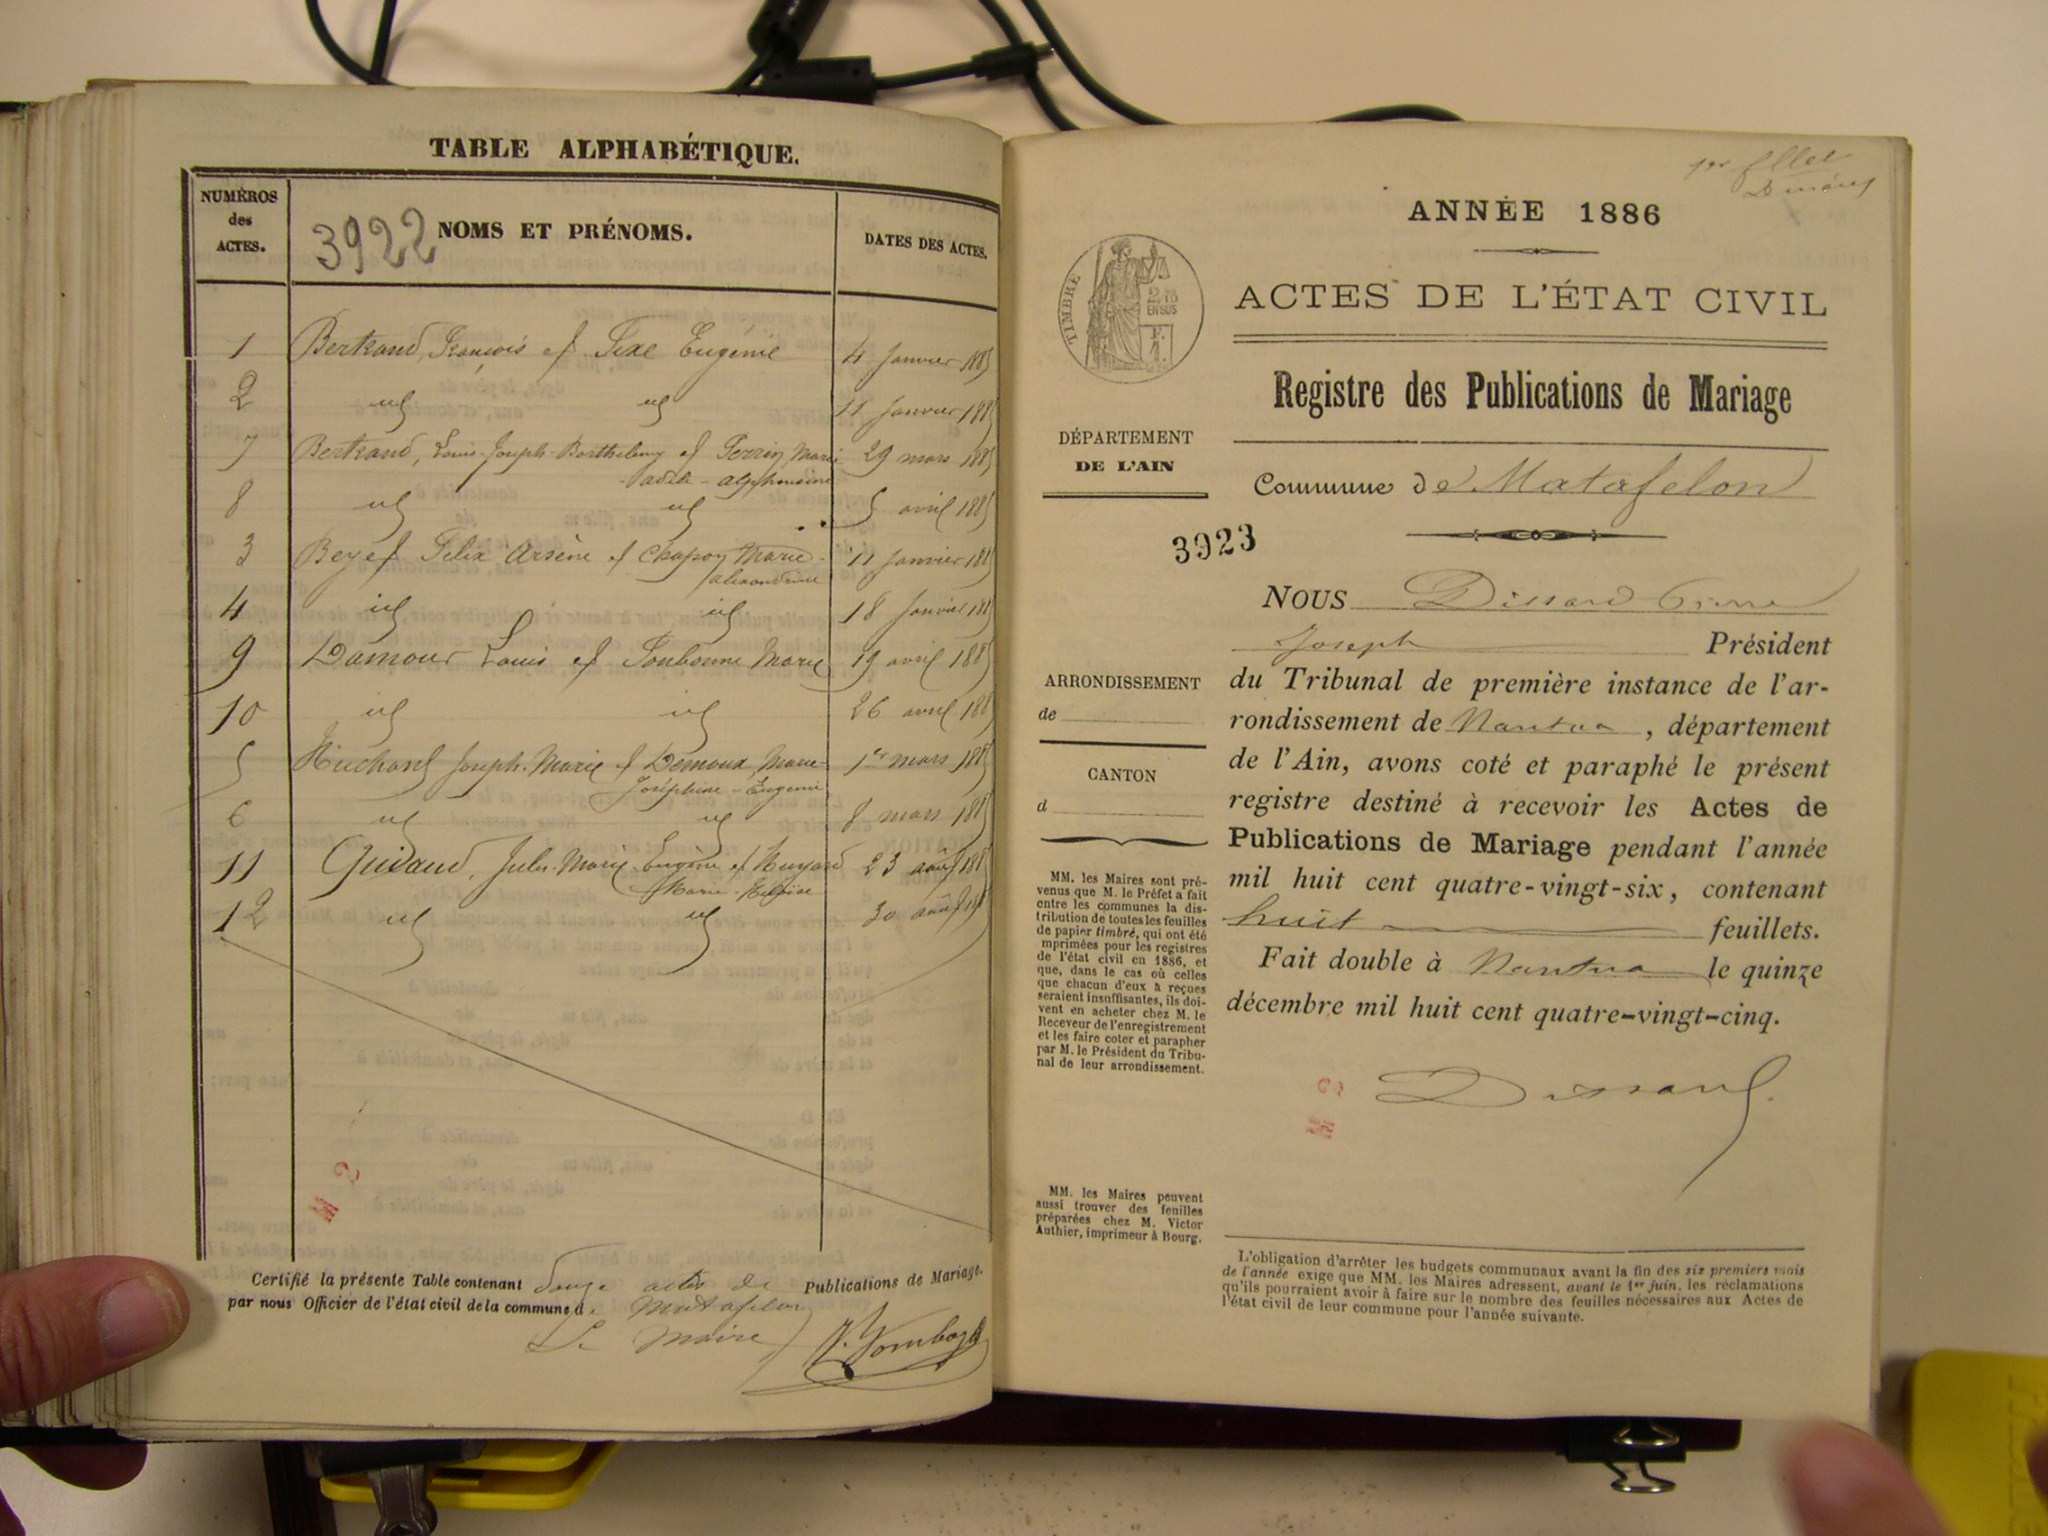 TABLE ALPHABÉTIQUE.
NUMÉROS des ACTES.
3922 NOMS ET PRÉNOMS.
DATES DES ACTES.
1 Bertrand, François et Tixe Eugénie 4 Janvier 1885
2 id id 11 Janvier 1885
7 Bertrand, Louis-Joseph-Barthelemy et Perrin Marie 29 mars 1885
adèle-alphonsine
8 id id 5 avril 1885
3 Beyet Félix Arsène et Chapoy Marie- 11 Janvier 1885
alexandrine
4 id id 18 Janvier 1885
9 Damour Louis et Marie 19 avril 1885
10 id id 26 avril 1885
5 Joseph-Marie et Demoux, Marie- 1er mars 1885
Joséphine-Eugénie
6 id id 8 mars 1885
11 Guidaud, Jules-Marie-Eugène et Huyard 23 août 1885
Marie-Eloïse
12 id id 30 août 1885
Certifié la présente Table contenant douze actes de Publications de Mariage.
par nous Officier de l'état civil de la commune de Matafelon
Le Maire
ANNÉE 1886
ACTES DE L'ÉTAT CIVIL
TIMBRE
2/10
EN SUS
Registre des Publications de Mariage
DÉPARTEMENT
DE L'AIN
Commune de Matafelon
3923
NOUS Dissard Pierre
Joseph Président
du Tribunal de première instance de l'ar-
rondissement de Nantua, département
de l'Ain, avons coté et paraphé le présent
registre destiné à recevoir les Actes de
Publications de Mariage pendant l'année
mil huit cent quatre-vingt-six, contenant
huit feuillets.
Fait double à Nantua le quinze
décembre mil huit cent quatre-vingt-cinq.
Dissard
ARRONDISSEMENT
de
CANTON
d
MM. les Maires sont pré-
venus que M. le Préfet a fait
entre les communes la dis-
tribution de toutes les feuilles
de papier timbré, qui ont été
mprimées pour les registres
de l'état civil en 1886, et
que, dans le cas où celles
que chacun d'eux a reçues
seraient insuffisantes, ils doi-
vent en acheter chez M. le
Receveur de l'enregistrement
et les faire coter et parapher
par M. le Président du Tribu-
nal de leur arrondissement.
MM. les Maires peuvent
aussi trouver des feuilles
préparées chez M. Victor
Authier, imprimeur à Bourg.
L'obligation d'arrêter les budgets communaux avant la fin des six premiers mois
de l'année exige que MM. les Maires adressent, avant le 1er juin, les réclamations
qu'ils pourraient avoir à faire sur le nombre des feuilles nécessaires aux Actes de
l'état civil de leur commune pour l'année suivante.